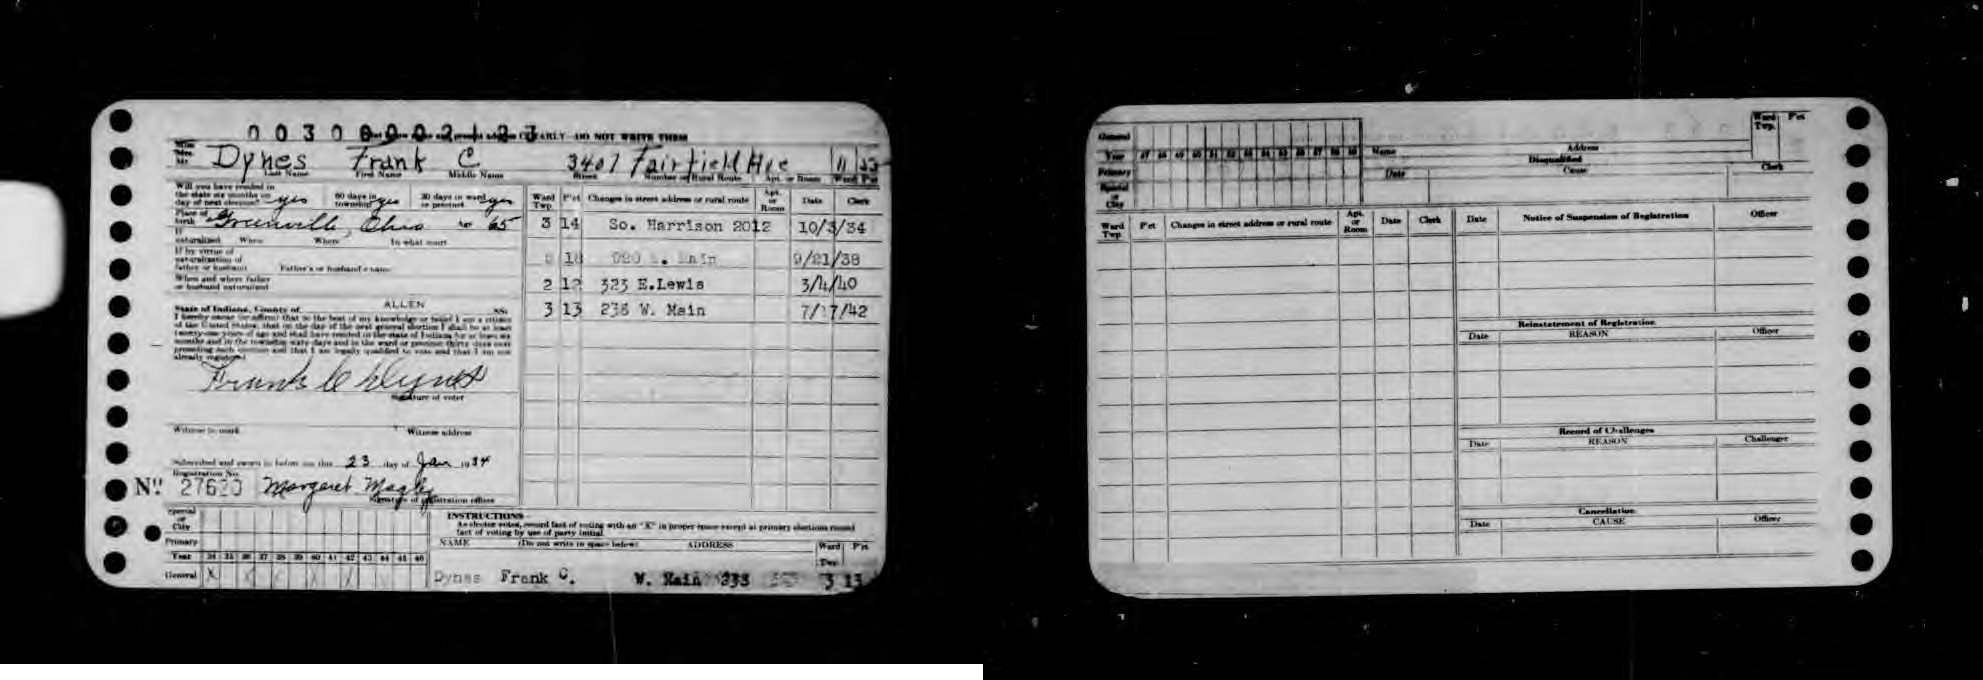 0 0 3 0 0 0 0 2 1 2 3
CLEARLY—DO NOT WRITE THEM
Miss
Mrs.
Mr. Dynes Frank C 3407 Fairfield Ave 11 23
Last Name First Name Middle Name Street Number or Rural Route Apt. or Room Ward P'ct
Will you have resided in
the state six months on
day of next election? yes 60 days in
township? yes 30 days in ward
or precinct yes
Place of
birth Greenville, Ohio Age 65
If
naturalized When Where In what court
If by virtue of
naturalization of
father or husband Father's or husband's name
When and where father
or husband naturalized
State of Indiana, County of ALLEN SS:
I hereby swear (or affirm) that to the best of my knowledge or belief I am a citizen
of the United States, that on the day of the next general election I shall be at least
twenty-one years of age and shall have resided in the state of Indiana for at least six
months and in the township sixty days and in the ward or precinct thirty days next
preceding such election and that I am legally qualified to vote and that I am not
already registered.
Frank C Dynes
Signature of voter
Witness to mark Witness address
Subscribed and sworn to before me this 23 day of Jan 1934
Registration No.
No. Margaret
Signature of registration officer
Ward
Twp. P'ct Changes in street address or rural route Apt.
or
Room Date Clerk
3 14 So. Harrison 2012 10/3/34
Main 9/21/38
2 12 323 E.Lewis 3/4/40
3 13 238 W. Main 7/17/42
Special
or
City
Primary
Year 34 35 36 37 38 39 40 41 42 43 44 45 46
General X X X X X
INSTRUCTIONS
As elector votes, record fact of voting with an "X" in proper space except at primary elections record
fact of voting by use of party initial.
NAME (Do not write in space below) ADDRESS Ward
Twp. P'ct
Dynes Frank C. W. Main 3 13
General
Year 47 48 49 50 51 52 53 54 55 56 57 58 59
Primary
Special
or
City
Name Address Ward
Twp. P'ct
Disqualified
Date Cause Clerk
Ward
Twp. P'ct Changes in street address or rural route Apt.
or
Room Date Clerk
Date Notice of Suspension of Registration Officer
Reinstatement of Registration
Date REASON Officer
Record of Challenges
Date REASON Challenger
Cancellation
Date CAUSE Officer